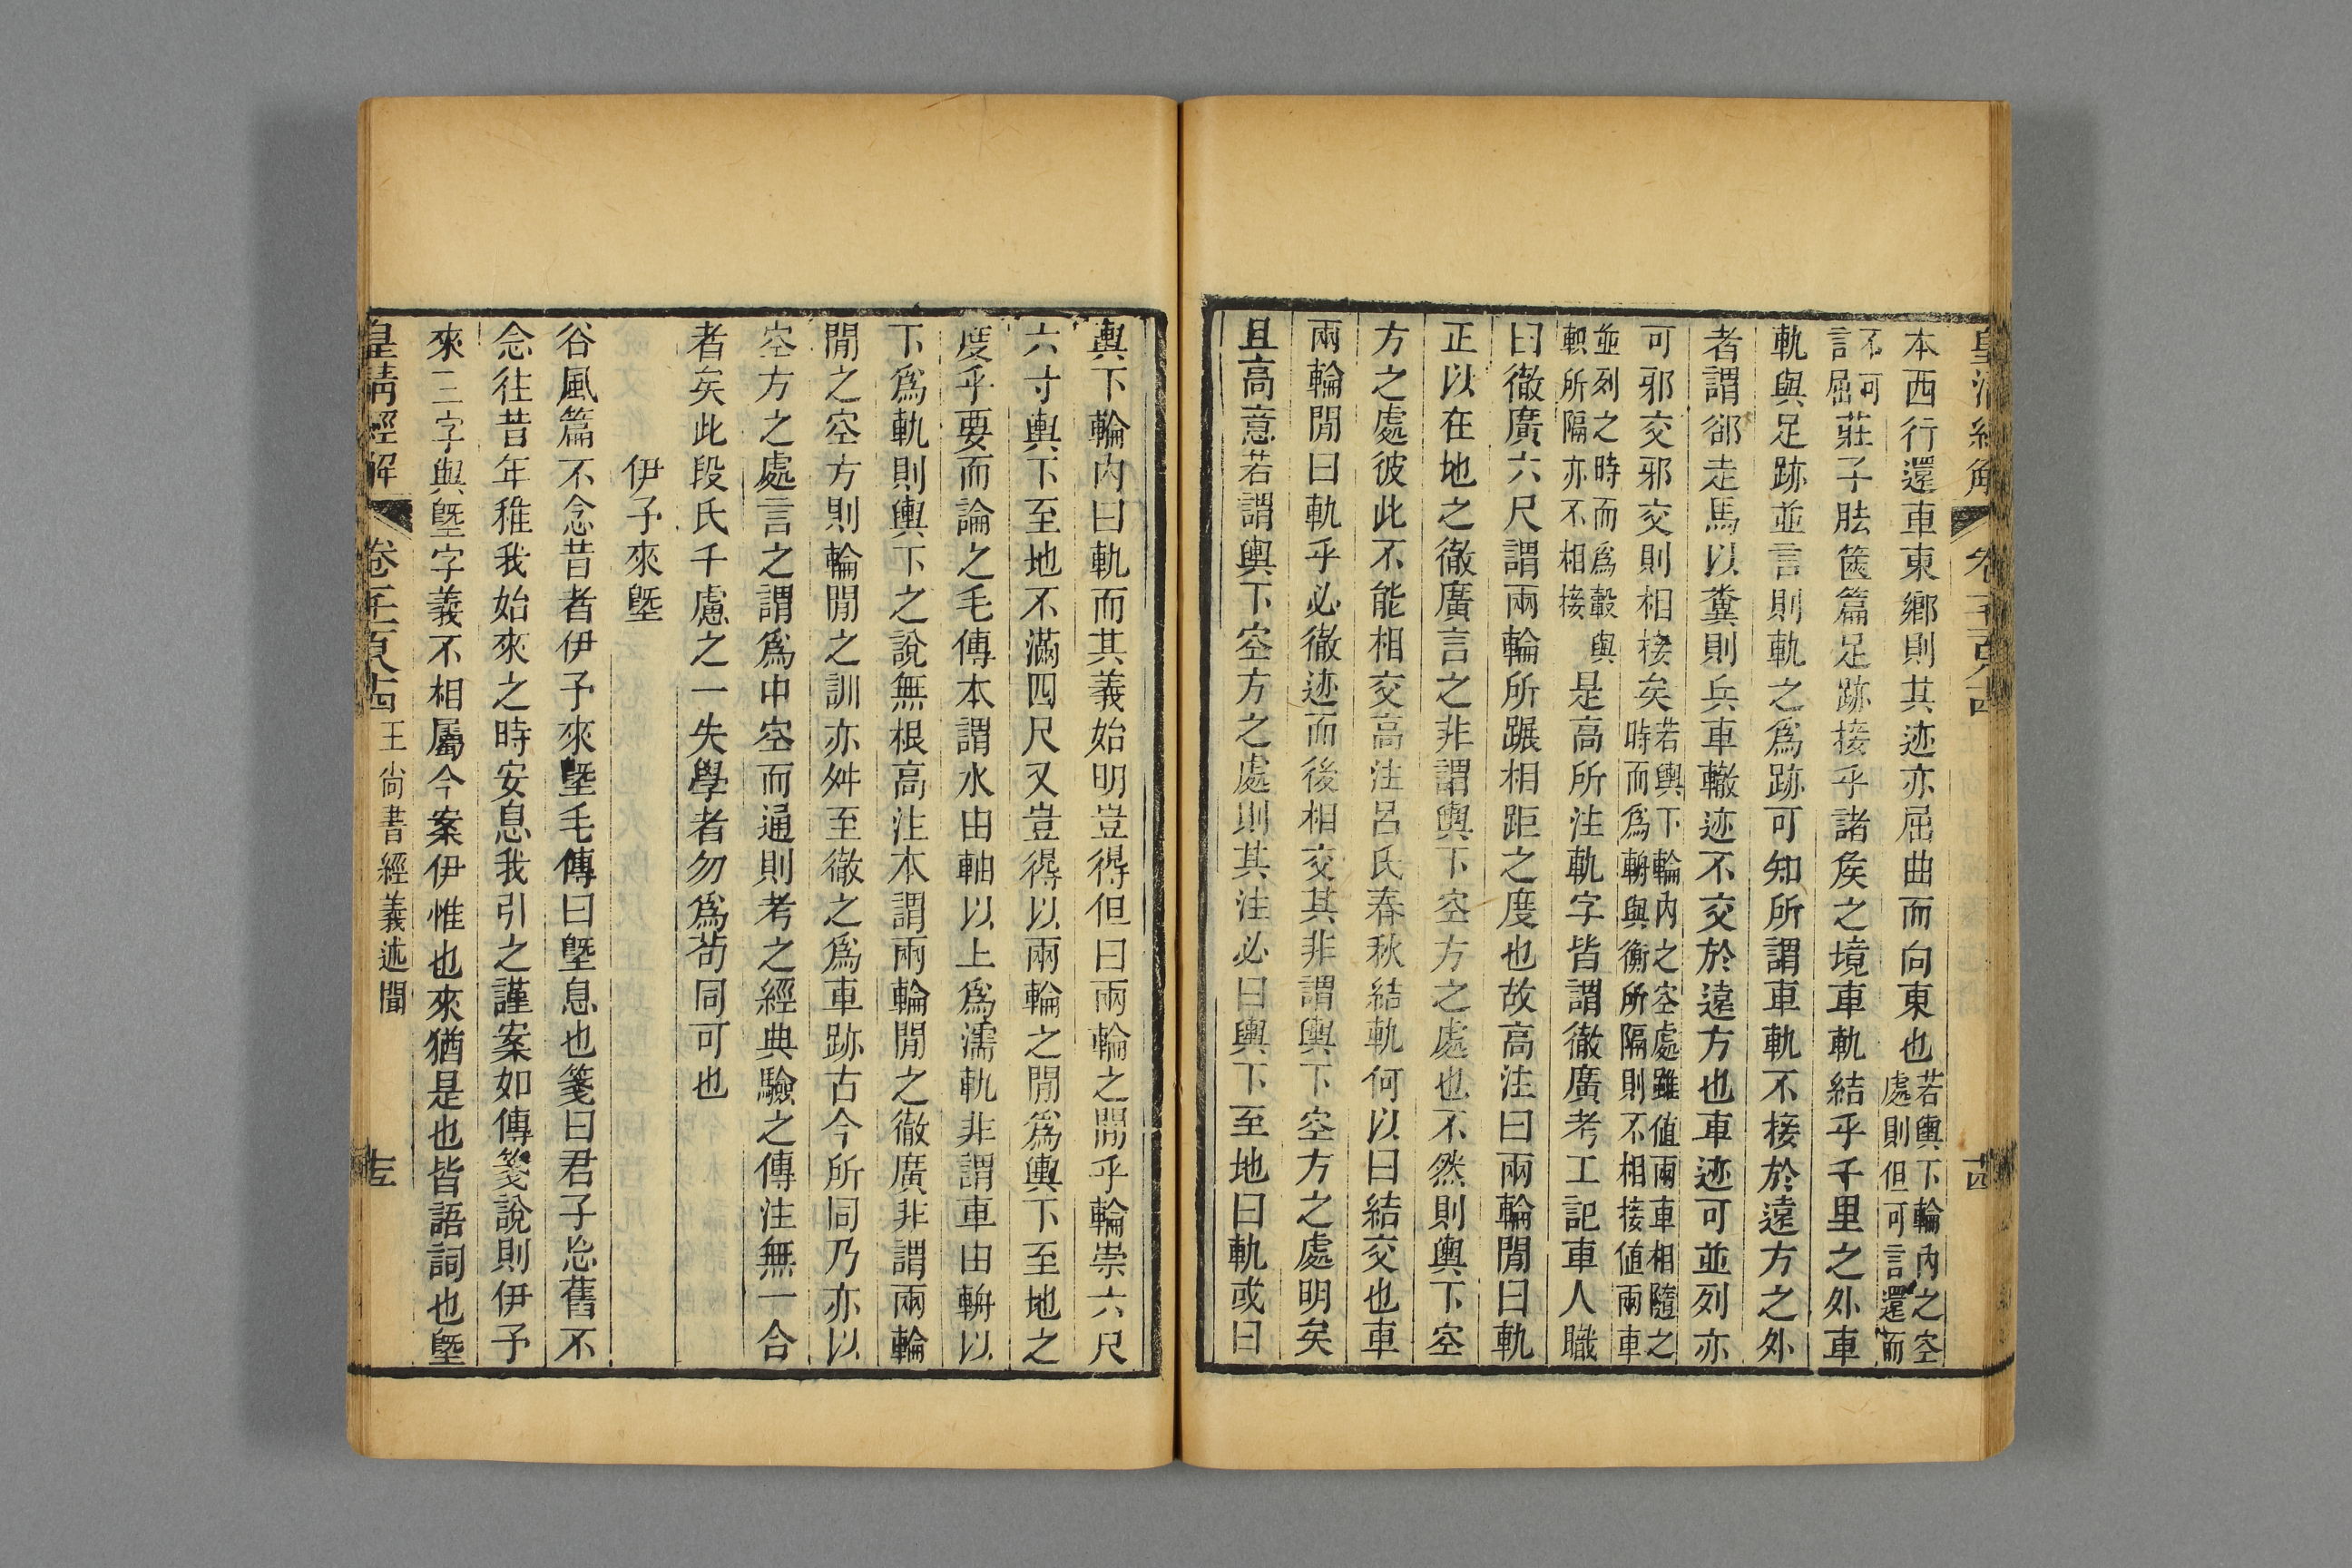 皇清經解 卷 十四
本西行還車東鄉則其迹亦屈曲而向東也若輿下輪內之空處則但可言還而
不可言屈莊子胠篋篇足跡接乎諸矦之境車軌結乎千里之外車
軌與足跡並言則軌之爲跡可知所謂車軌不接於遠方之外
者謂郤走馬以糞則兵車轍迹不交於遠方也車迹可並列亦
可邪交邪交則相接矣若輿下輪內之空處雖値兩車相隨之時而爲輈與衡所隔則不相接値兩車
並列之時而爲轂與軹所隔亦不相接是高所注軌字皆謂徹廣考工記車人職
曰徹廣六尺謂兩輪所蹍相距之度也故高注曰兩輪閒曰軌
正以在地之徹廣言之非謂輿下空方之處也不然則輿下空
方之處彼此不能相交高注呂氏春秋結軌何以曰結交也車
兩輪閒曰軌乎必徹迹而後相交其非謂輿下空方之處明矣
且高意若謂輿下空方之處則其注必曰輿下至地曰軌或曰
輿下輪內曰軌而其義始明豈得但曰兩輪之閒乎輪崇六尺
六寸輿下至地不滿四尺又豈得以兩輪之閒爲輿下至地之
度乎要而論之毛傳本謂水由軸以上爲濡軌非謂車由輈以
下爲軌則輿下之說無根高注本謂兩輪閒之徹廣非謂兩輪
閒之空方則輪閒之訓亦舛至徹之爲車跡古今所同乃亦以
空方之處言之謂爲中空而通則考之經典驗之傳注無一合
者矣此段氏千慮之一失學者勿爲苟同可也
伊予來墍
谷風篇不念昔者伊予來墍毛傳曰墍息也箋曰君子忩舊不
念往昔年稚我始來之時安息我引之謹案如傳箋說則伊予
來三字與墍字義不相屬今案伊惟也來猶是也皆語詞也墍
皇清經解 卷千一百八十四 王尙書經義述聞 十五